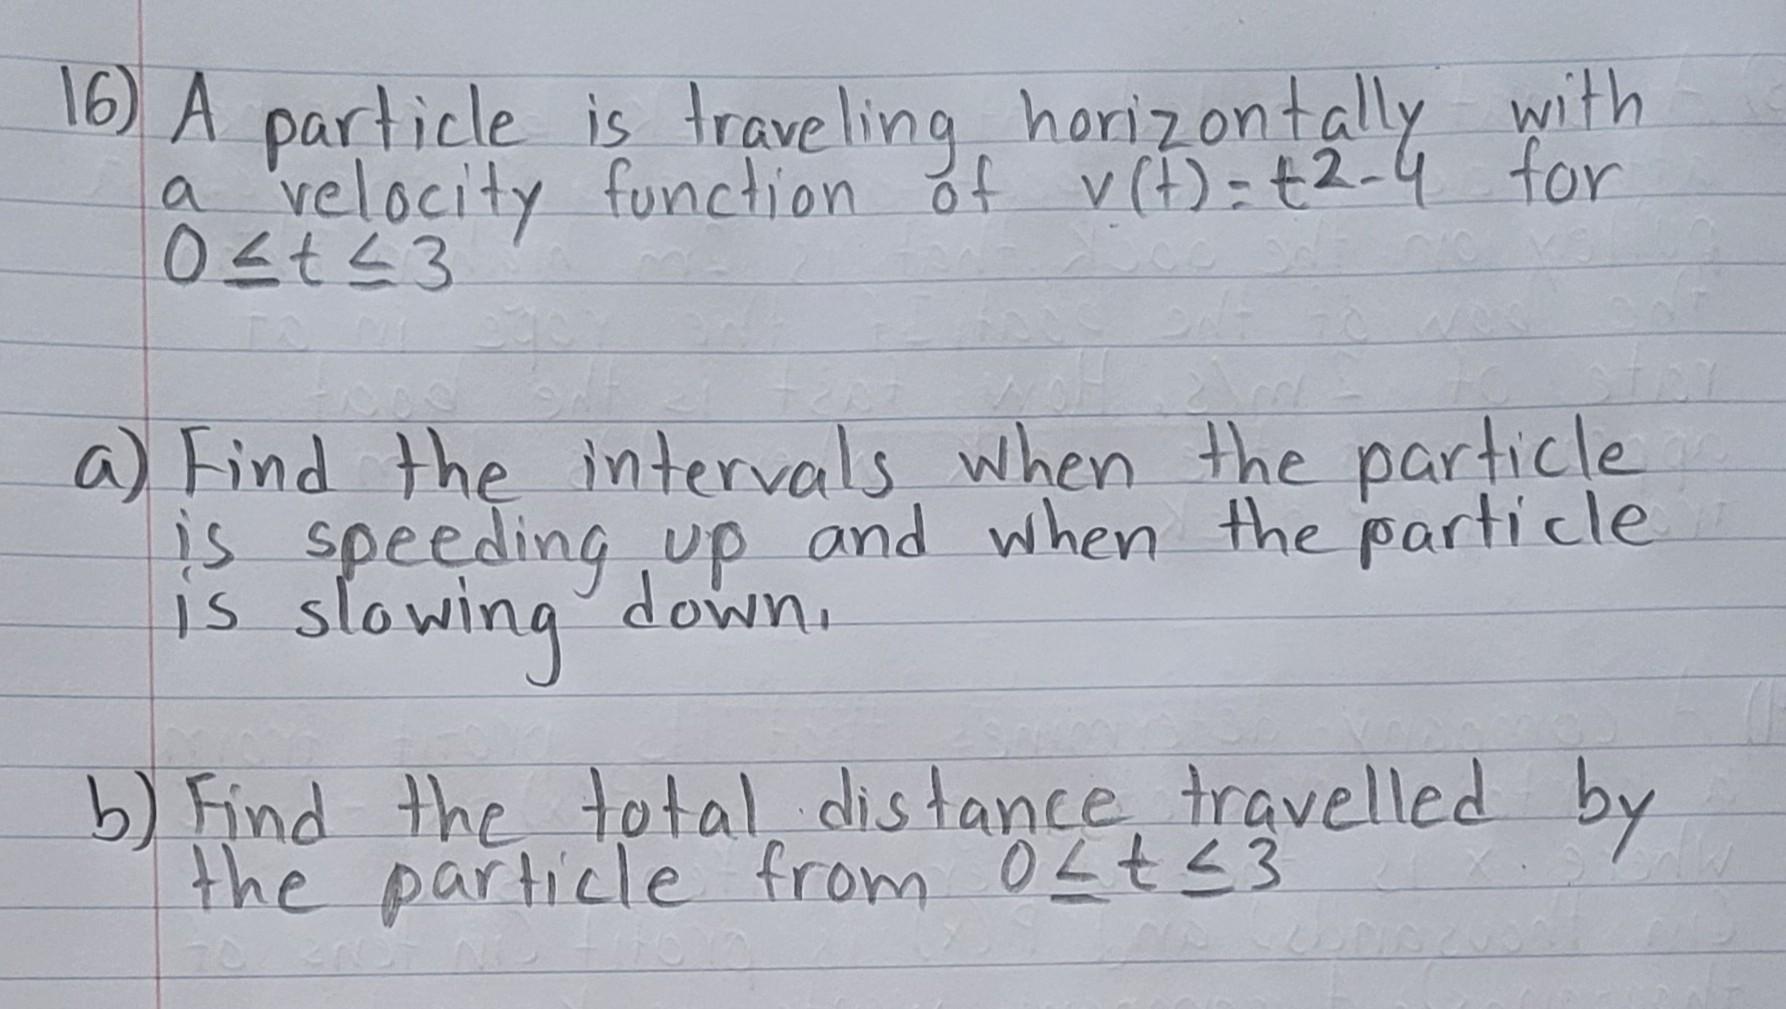 16) A particle is traveling horizontally with
a velocity function of v(t)=t2-4 for
0≤t≤3
a) Find the intervals when the particle
is speeding up and when the particle
is slowing down.
b) Find the total distance travelled by
the particle from 0≤t≤3